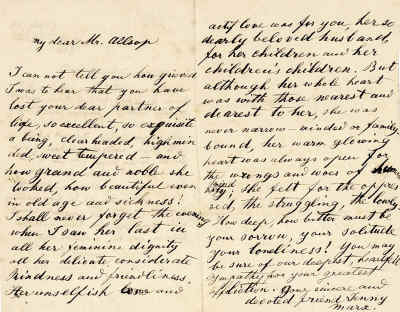 my dear Mr. Allsop
I can not tell you how grieved
I was to hear that you have
lost your dear partner of
life, so excellent, so exquisite
a being, clearheaded, highmin
ded, sweet tempered - and
how grand and noble she
looked, how beautiful even
in old age and sickness!
I shall never forget the evening
when I saw her last in
all her feminine dignity
all her delicate considerate
kindness and friendliness.
Her unselfish love and
love was for you, her so
dearly beloved husband,
for her children and her
children's children. But
although her whole heart
was with those nearest and
dearest to her, she was
never narrow-minded or family
bound, her warm glowing
heart was always open for
the wrongs and woes of
She felt for the oppres
sed, the struggling, the lowly.
How deep, how bitter must be
your sorrow, your solitude
your loneliness! You may
be sure of our deepest, heartfelt
sympathy for your greatest
affliction. Your sincere and
devoted friend Jenny
Marx.